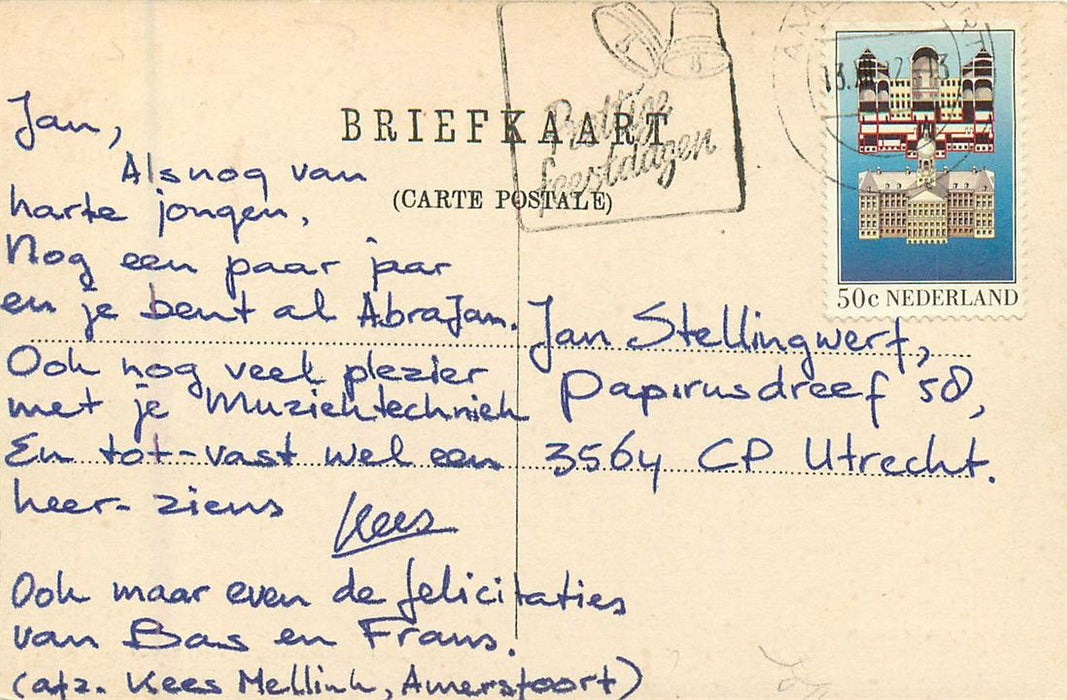 BRIEFKAART
(CARTE POSTALE)
Prettige
feestdagen
50c NEDERLAND
Jan,
Alsnog van
harte jongen,
Nog een paar jaar
en je bent al AbraJam.
Ook nog veel plezier
met je Muziektechniek
En tot-vast wel een
keer-ziens
Kees
Ook maar even de felicitaties
van Bas en Frans.
(afz. Kees Mellink, Amersfoort)
Jan Stellingwerf,
Papirusdreef 58,
3564 CP Utrecht.